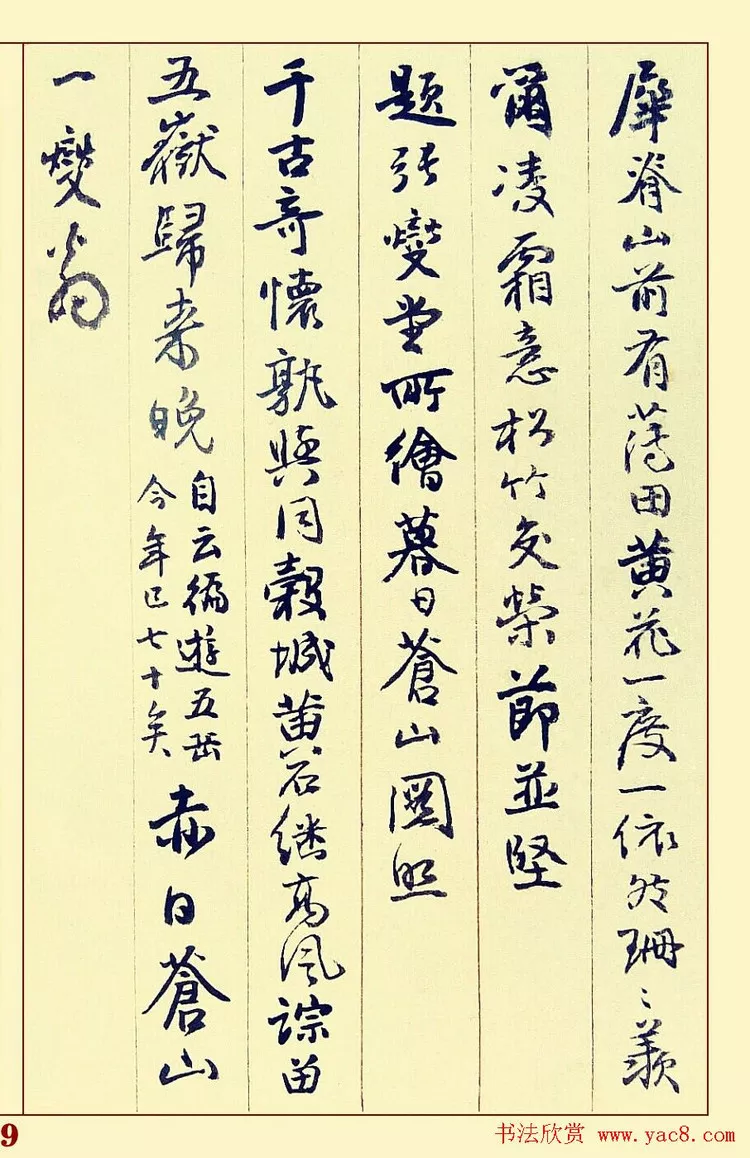 犀脊山前有薄田黄花一度一依然珊〻羡
爾凌霜意松竹交榮節並堅
題張燮堂所繪暮日蒼山圖照
千古奇懷孰與同穀城黄石繼高風踪留
五嶽歸来晚
自云徧遊五岳
今年已七十矣
赤日蒼山
一燮翁
9
书法欣赏 www.yac8.com